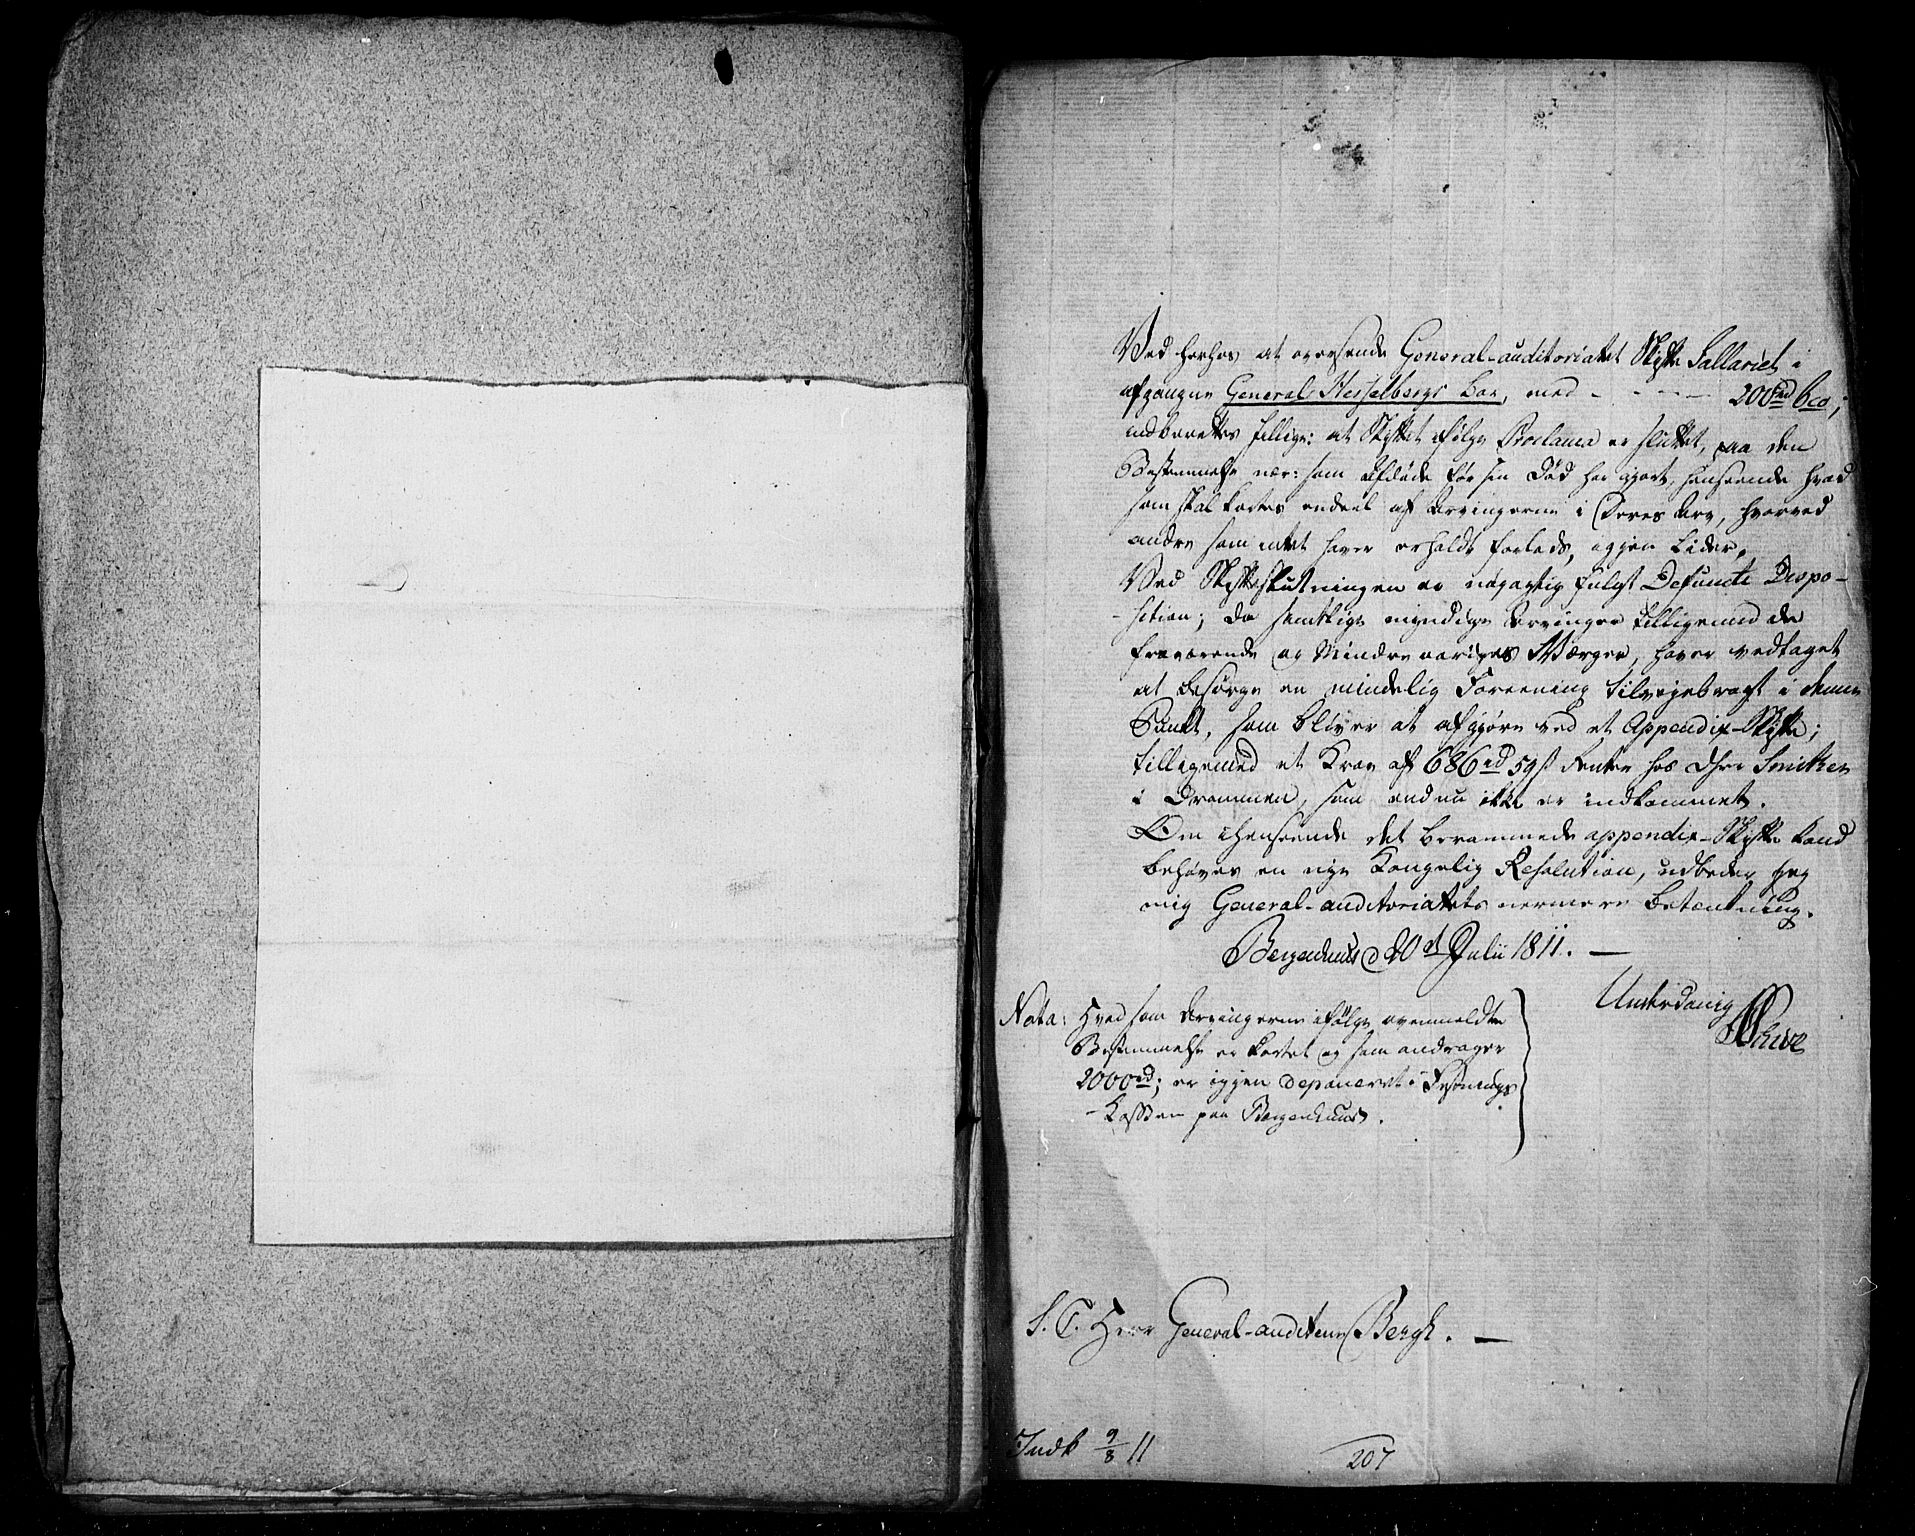 Ved herhos at oversende General-auditoriatet Skifte Sallariet i
afgangne General Hesselbergs Boe, med - - - - 200rd bco;
indberettes tillige: at Skiftet ifølge Proclama er sluttet, paa den
Bestemmelse nær: som Afdøde før sin Død har gjort, henseende hvad
som skal kortes endeel af Arvingerne i Deres Arv, hvorved
andre som intet haver erholdt forlods, igjen Lider.
Ved Skifteslutningen er nøyagtig fulgt Defuncti Dispo-
-sition; da samtlige myndige Arvinger tilligemed de
fraværende og Mindreaariges Værger, haver vedtaget
at besørge en mindelig Foreening tilvejebragt i denne
Punkt, som bliver at afgjøre ved et Appendix-Skifte;
tilligemed et Krav af 686rd 59s Renter hos Dhr Smitker
i Drammen, som endnu ikke er indkommet.
Om ihenseende det berammede appendix-Skifte kand
behøves en nye Kongelig Resolution, udbeder jeg
mig General-auditoriatets nermere betænkning.
Bergenhuus d 20d Julii 1811. —
Underdanig
Nota: Hvad som Arvingerne ifølge ovenmeldte
Bestemmelse er kortet og som andrager
2000rd; er igjen deponeret i Festnings
-Kassen paa Bergenhuus.
S. T. Herr General-auditeur Bergh. —
Indk 9/8 11
207